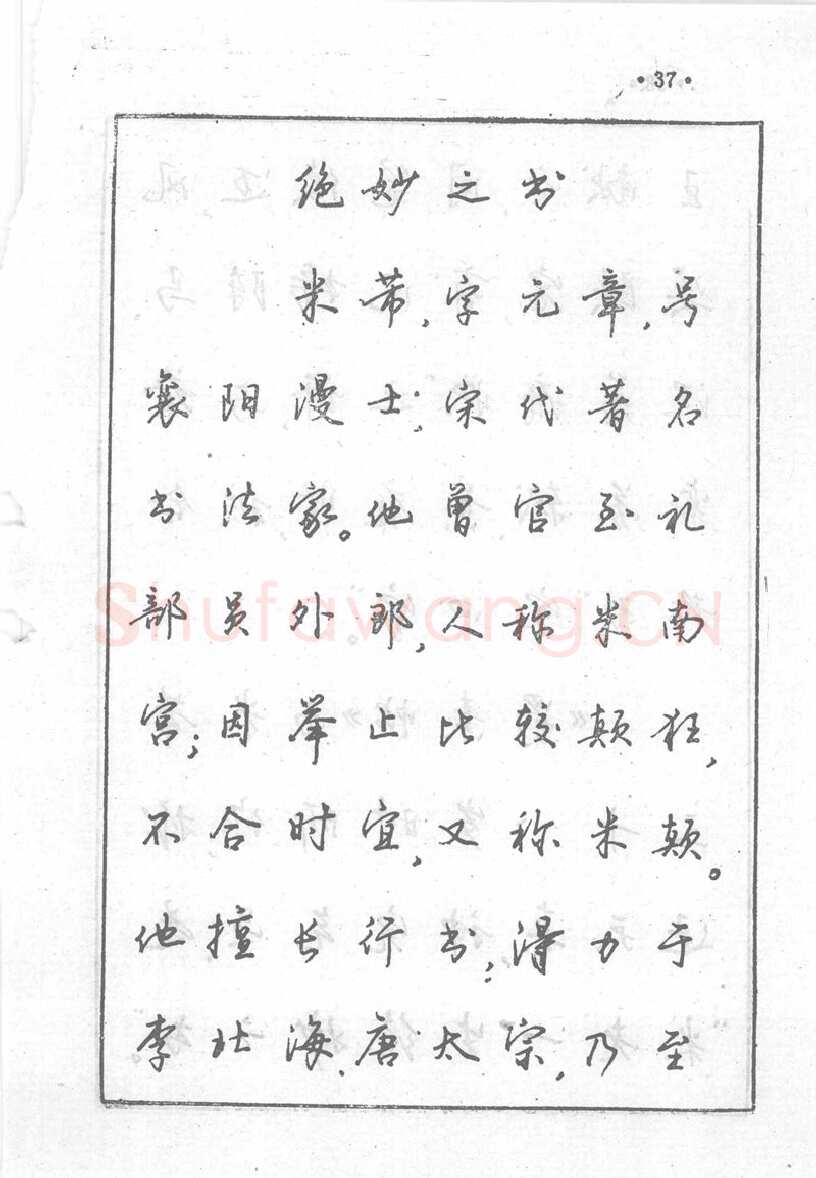 ·37·
绝妙之书
米芾,字元章,号
襄阳漫士;宋代著名
书法家。他曾官至礼
部员外郎,人称米南
宫;因举止比较颠狂,
不合时宜,又称米颠。
他擅长行书;得力于
李北海、唐太宗,乃至
Shufawang.CN